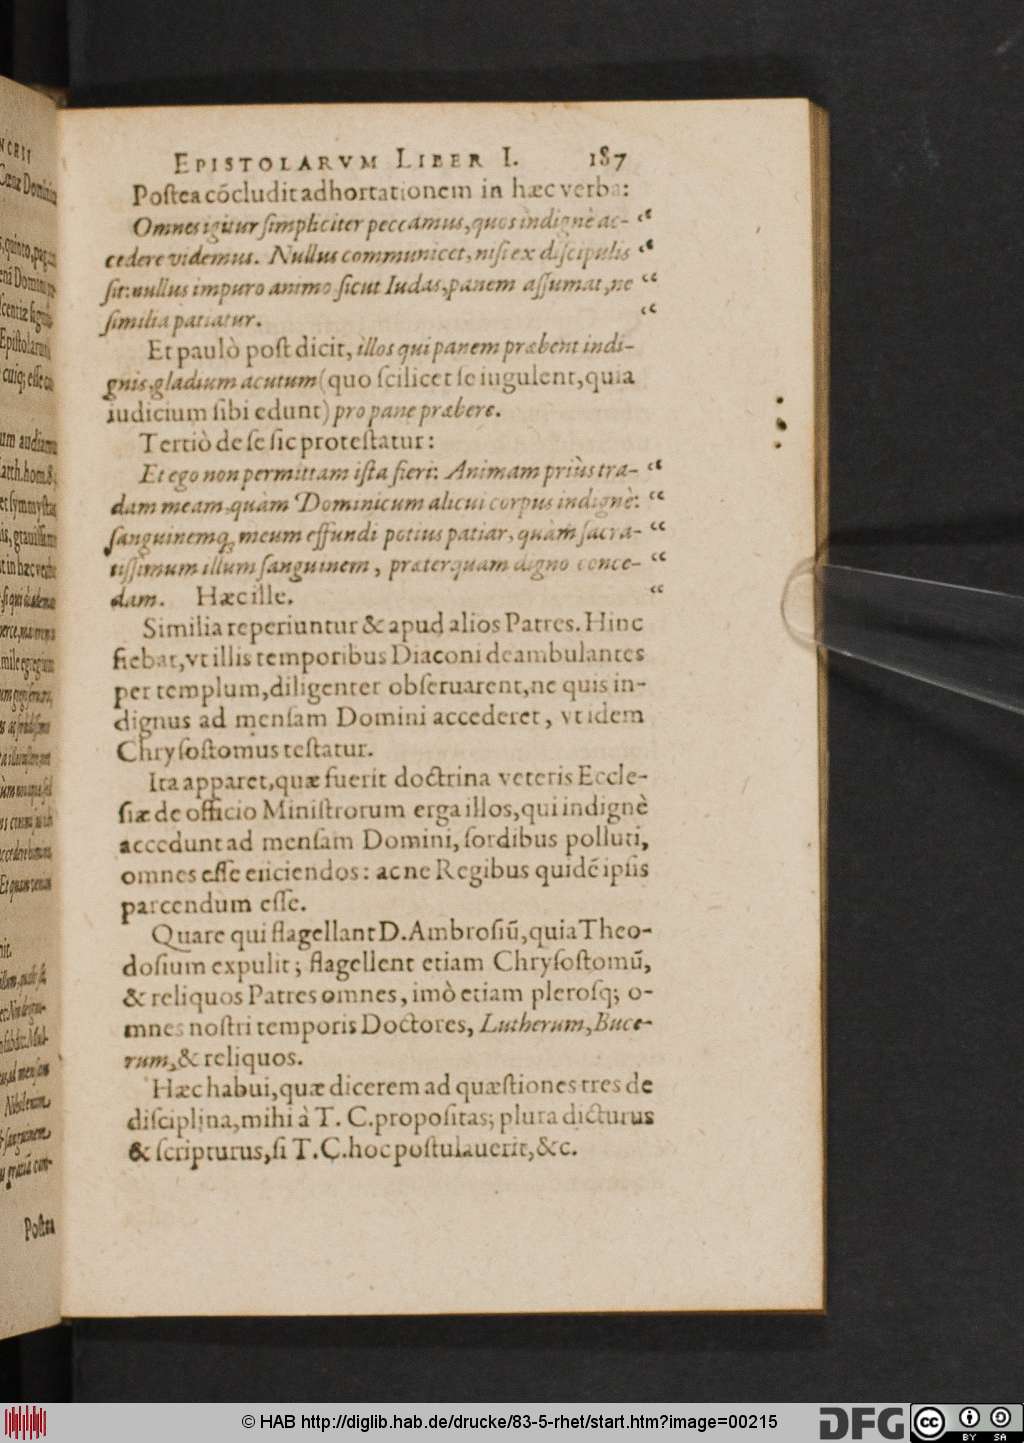 EPISTOLARVM LIBER I. 187
Postea cõcludit adhortationem in hæc verba:
Omnes igitur simpliciter peccamus, quos indignè ac-
cedere videmus. Nullus communicet, nisi ex discipulis
sit: nullus impuro animo sicut Iudas, panem assumat, ne
similia patiatur.
Et paulò post dicit, illos qui panem præbent indi-
gnis, gladium acutum (quo scilicet se iugulent, quia
iudicium sibi edunt) pro pane præbere.
Tertiò de se sic protestatur:
Et ego non permittam ista fieri: Animam priùs tra-
dam meam, quàm Dominicum alicui corpus indignè:
sanguinemq; meum effundi potius patiar, quàm sacra-
tissimum illum sanguinem, præterquam digno conce-
dam. Hæc ille.
Similia reperiuntur & apud alios Patres. Hinc
fiebat, vt illis temporibus Diaconi deambulantes
per templum, diligenter obseruarent, ne quis in-
dignus ad mensam Domini accederet, vt idem
Chrysostomus testatur.
Ita apparet, quæ fuerit doctrina veteris Eccle-
siæ de officio Ministrorum erga illos, qui indignè
accedunt ad mensam Domini, sordibus polluti,
omnes esse eiiciendos: ac ne Regibus quidẽ ipsis
parcendum esse.
Quare qui flagellant D. Ambrosiũ, quia Theo-
dosium expulit; flagellent etiam Chrysostomũ,
& reliquos Patres omnes, imò etiam plerosq; o-
mnes nostri temporis Doctores, Lutherum, Buce-
rum, & reliquos.
Hæc habui, quæ dicerem ad quæstiones tres de
disciplina, mihi à T. C. propositas; plura dicturus
& scripturus, si T. C. hoc postulauerit, &c.
Postea
© HAB http://diglib.hab.de/drucke/83-5-rhet/start.htm?image=00215
DFG
cc BY SA